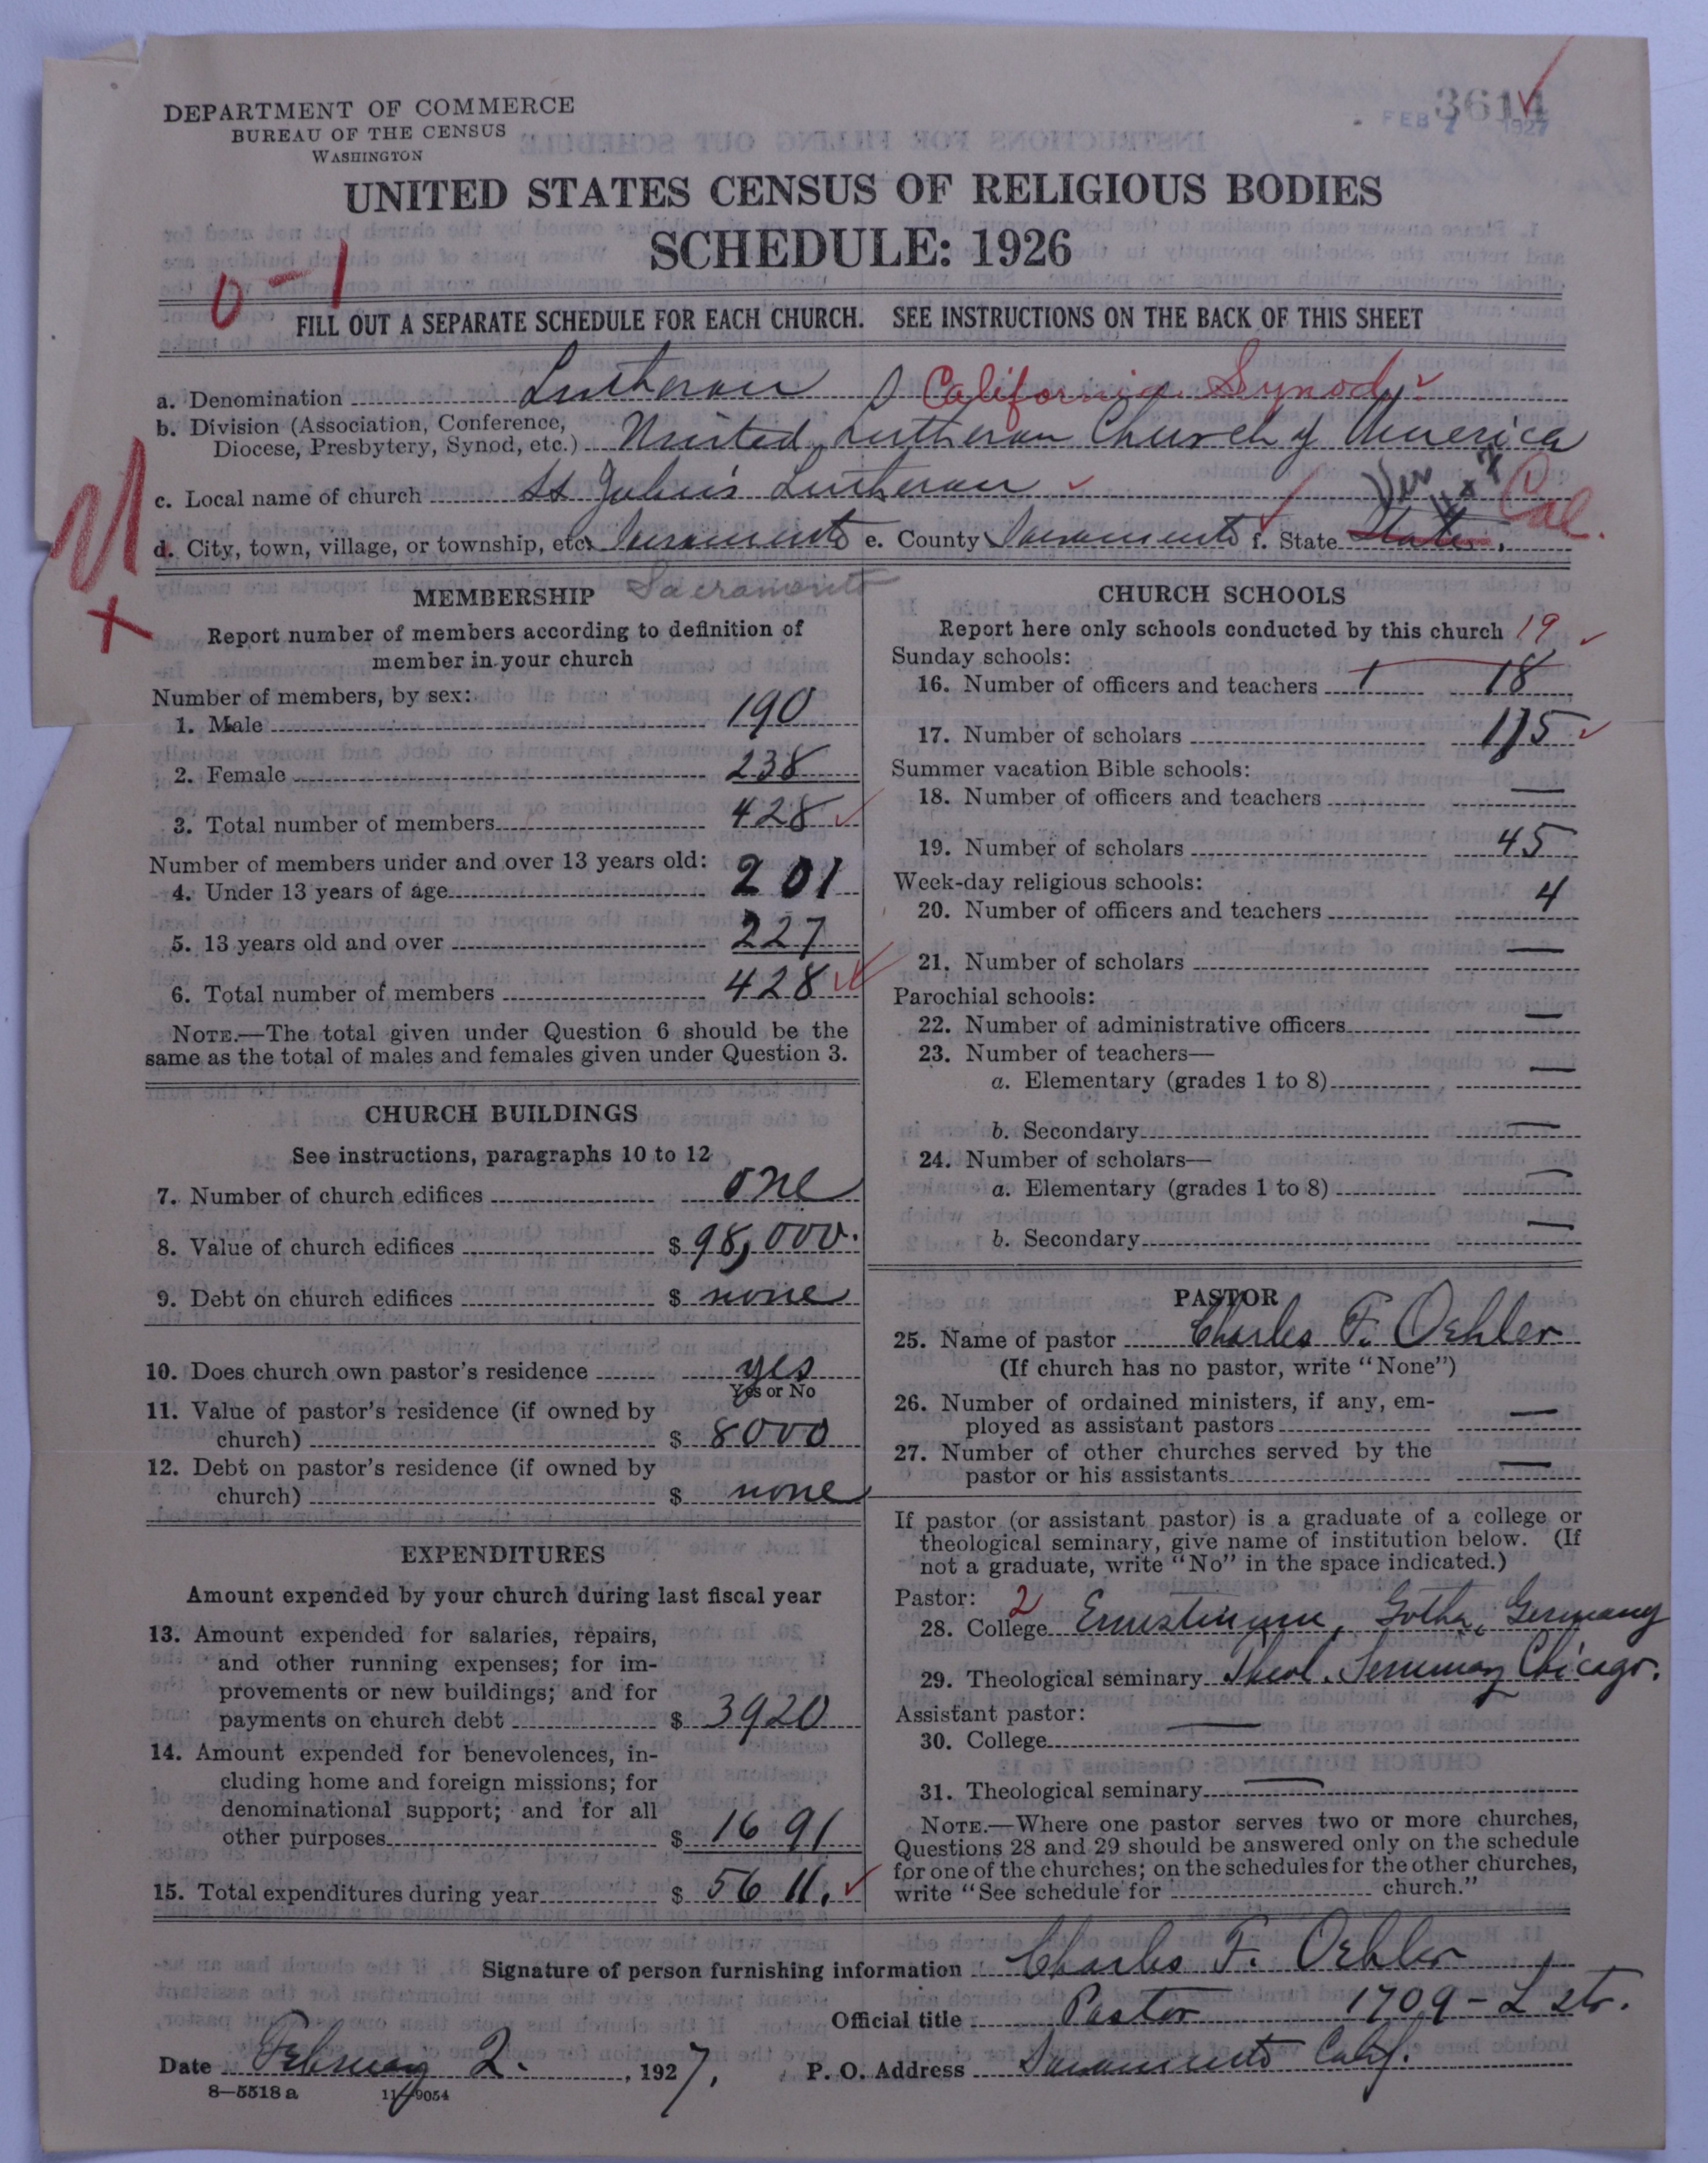 DEPARTMENT OF COMMERCE
BUREAU OF THE CENSUS
WASHINGTON
3614
FEB 7 1927
UNITED STATES CENSUS OF RELIGIOUS BODIES
SCHEDULE: 1926
0-1
FILL OUT A SEPARATE SCHEDULE FOR EACH CHURCH. SEE INSTRUCTIONS ON THE BACK OF THIS SHEET
a. Denomination Lutheran California Synod
b. Division (Association, Conference,
Diocese, Presbytery, Synod, etc.) United Lutheran Church of America
c. Local name of church St John's Lutheran
d. City, town, village, or township, etc. Sacramento e. County Sacramento f. State States. Cal.
Sacramento
MEMBERSHIP
Report number of members according to definition of
member in your church
Number of members, by sex:
1. Male 190
2. Female 238
3. Total number of members 428
Number of members under and over 13 years old:
4. Under 13 years of age 201
5. 13 years old and over 227
6. Total number of members 428
NOTE.—The total given under Question 6 should be the
same as the total of males and females given under Question 3.
CHURCH BUILDINGS
See instructions, paragraphs 10 to 12
7. Number of church edifices one
8. Value of church edifices $ 98,000.
9. Debt on church edifices $ none
10. Does church own pastor's residence yes
Yes or No
11. Value of pastor's residence (if owned by
church) $ 8000
12. Debt on pastor's residence (if owned by
church) $ none
EXPENDITURES
Amount expended by your church during last fiscal year
13. Amount expended for salaries, repairs,
and other running expenses; for im-
provements or new buildings; and for
payments on church debt $ 3920
14. Amount expended for benevolences, in-
cluding home and foreign missions; for
denominational support; and for all
other purposes $ 1691
15. Total expenditures during year $ 5611.
CHURCH SCHOOLS
Report here only schools conducted by this church 19
Sunday schools:
16. Number of officers and teachers 1 18
17. Number of scholars 175
Summer vacation Bible schools:
18. Number of officers and teachers —
19. Number of scholars 45
Week-day religious schools:
20. Number of officers and teachers 4
21. Number of scholars —
Parochial schools:
22. Number of administrative officers —
23. Number of teachers—
a. Elementary (grades 1 to 8) —
b. Secondary —
24. Number of scholars—
a. Elementary (grades 1 to 8) —
b. Secondary —
PASTOR
25. Name of pastor Charles F. Oehler
(If church has no pastor, write "None")
26. Number of ordained ministers, if any, em-
ployed as assistant pastors —
27. Number of other churches served by the
pastor or his assistants —
If pastor (or assistant pastor) is a graduate of a college or
theological seminary, give name of institution below. (If
not a graduate, write "No" in the space indicated.)
Pastor: 2
28. College Ernestinum, Gotha, Germany
29. Theological seminary Theol. Seminary Chicago.
Assistant pastor:
30. College —
31. Theological seminary —
NOTE.—Where one pastor serves two or more churches,
Questions 28 and 29 should be answered only on the schedule
for one of the churches; on the schedules for the other churches,
write "See schedule for church."
Signature of person furnishing information Charles F. Oehler
Official title Pastor 1709 - L str.
Date February 2. , 1927. P. O. Address Sacramento Calif.
8—5518 a 11—9054